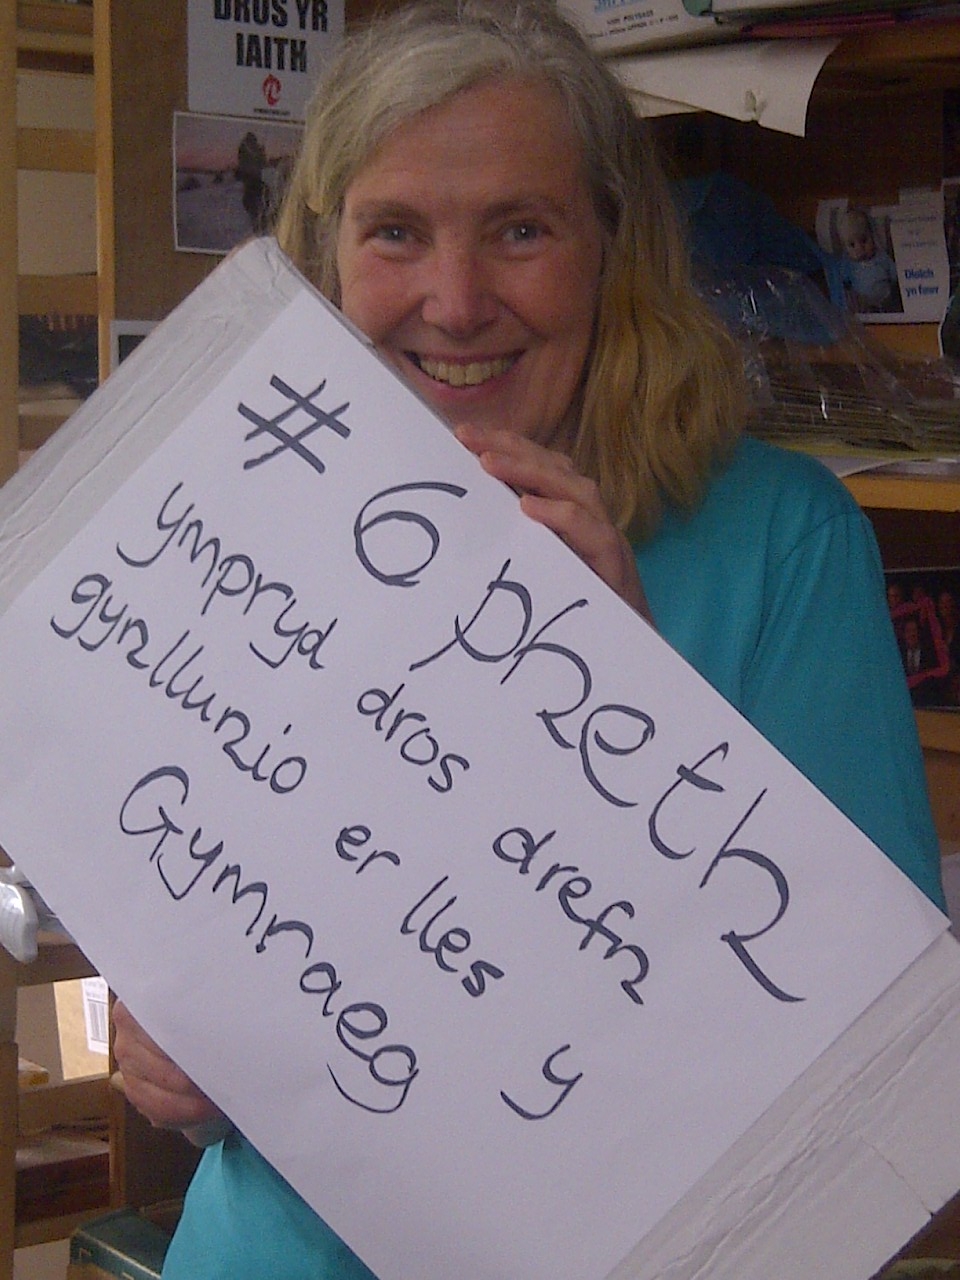 DROS YR
IAITH
# 6 pheth
ympryd dros drefn
gynllunio er lles y
Gymraeg
Diolch
yn fawr